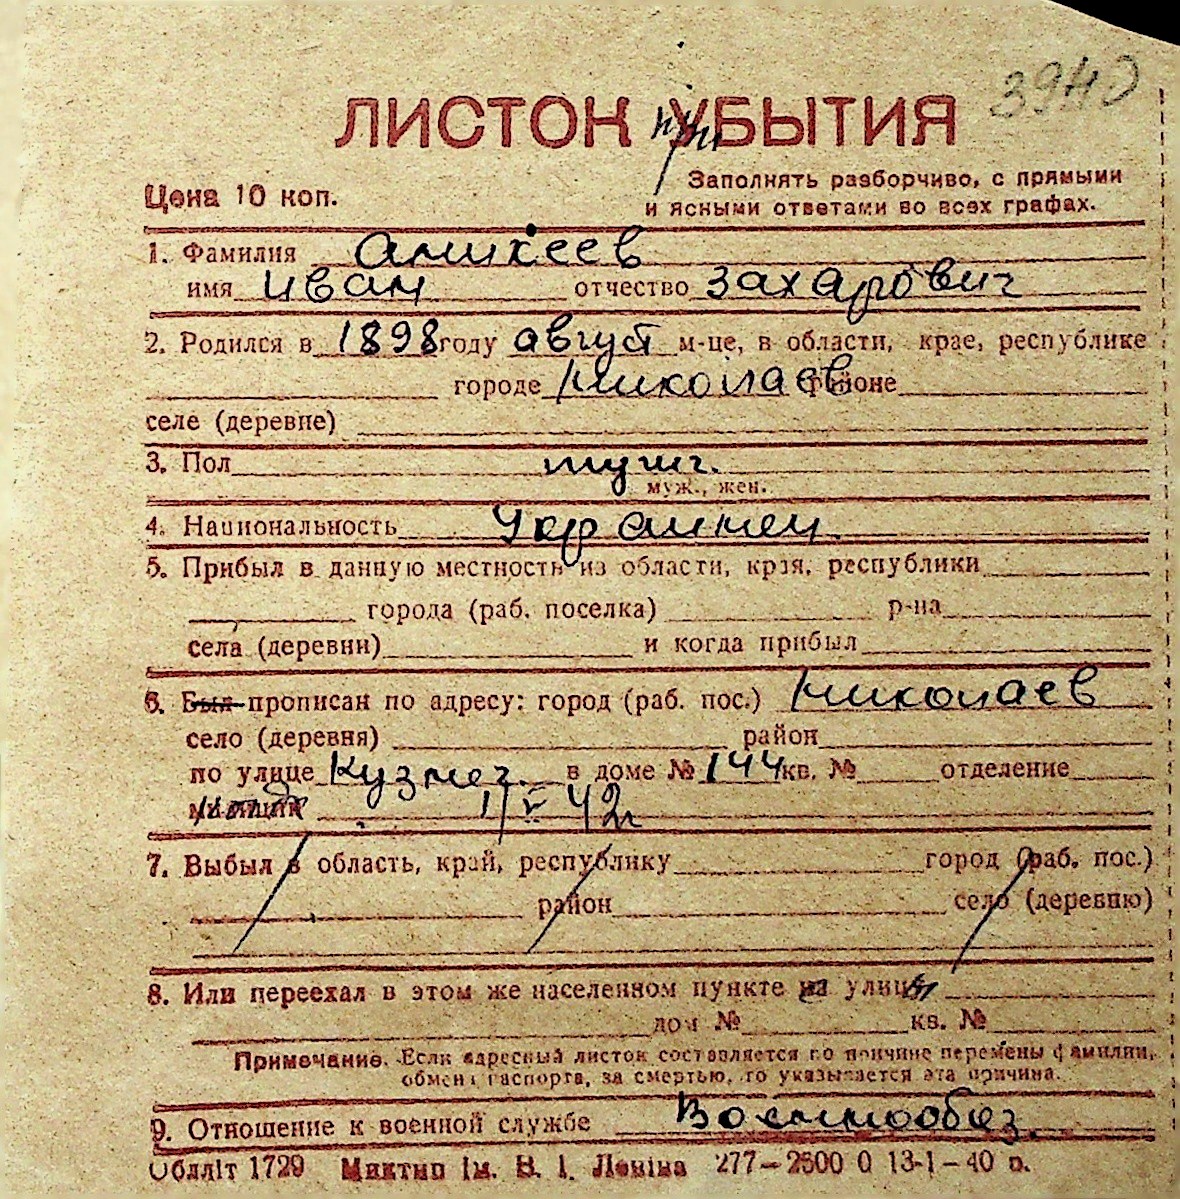 3940
ЛИСТОК УБЫТИЯ
при
Цена 10 коп.
Заполнять разборчиво, с прямыми
и ясными ответами во всех графах.
1. Фамилия Аникеев
имя Иван отчество Захарович
2. Родился в 1898 году август м-це, в области, крае, республике
городе Николаев районе
селе (деревне)
3. Пол муж.
муж., жен.
4. Национальность Украинец
5. Прибыл в данную местность из области, края, республики
города (раб. поселка) р-на
села (деревни) и когда прибыл
6. Был прописан по адресу: город (раб. пос.) Николаев
село (деревня) район
по улице Кузнеч. в доме № 144 кв. № отделение
милиции 1/V 42г
7. Выбыл в область, край, республику город (раб. пос.)
район село (деревню)
8. Или переехал в этом же населенном пункте на улицу
дом № кв. №
Примечание. Если адресный листок составляется по причине перемены фамилии,
обмена паспорта, за смертью, то указывается эта причина.
9. Отношение к военной службе Военнообяз.
Облліт 1729 Миктип Ім. В. І. Леніна 277—2500 0 13-1—40 р.